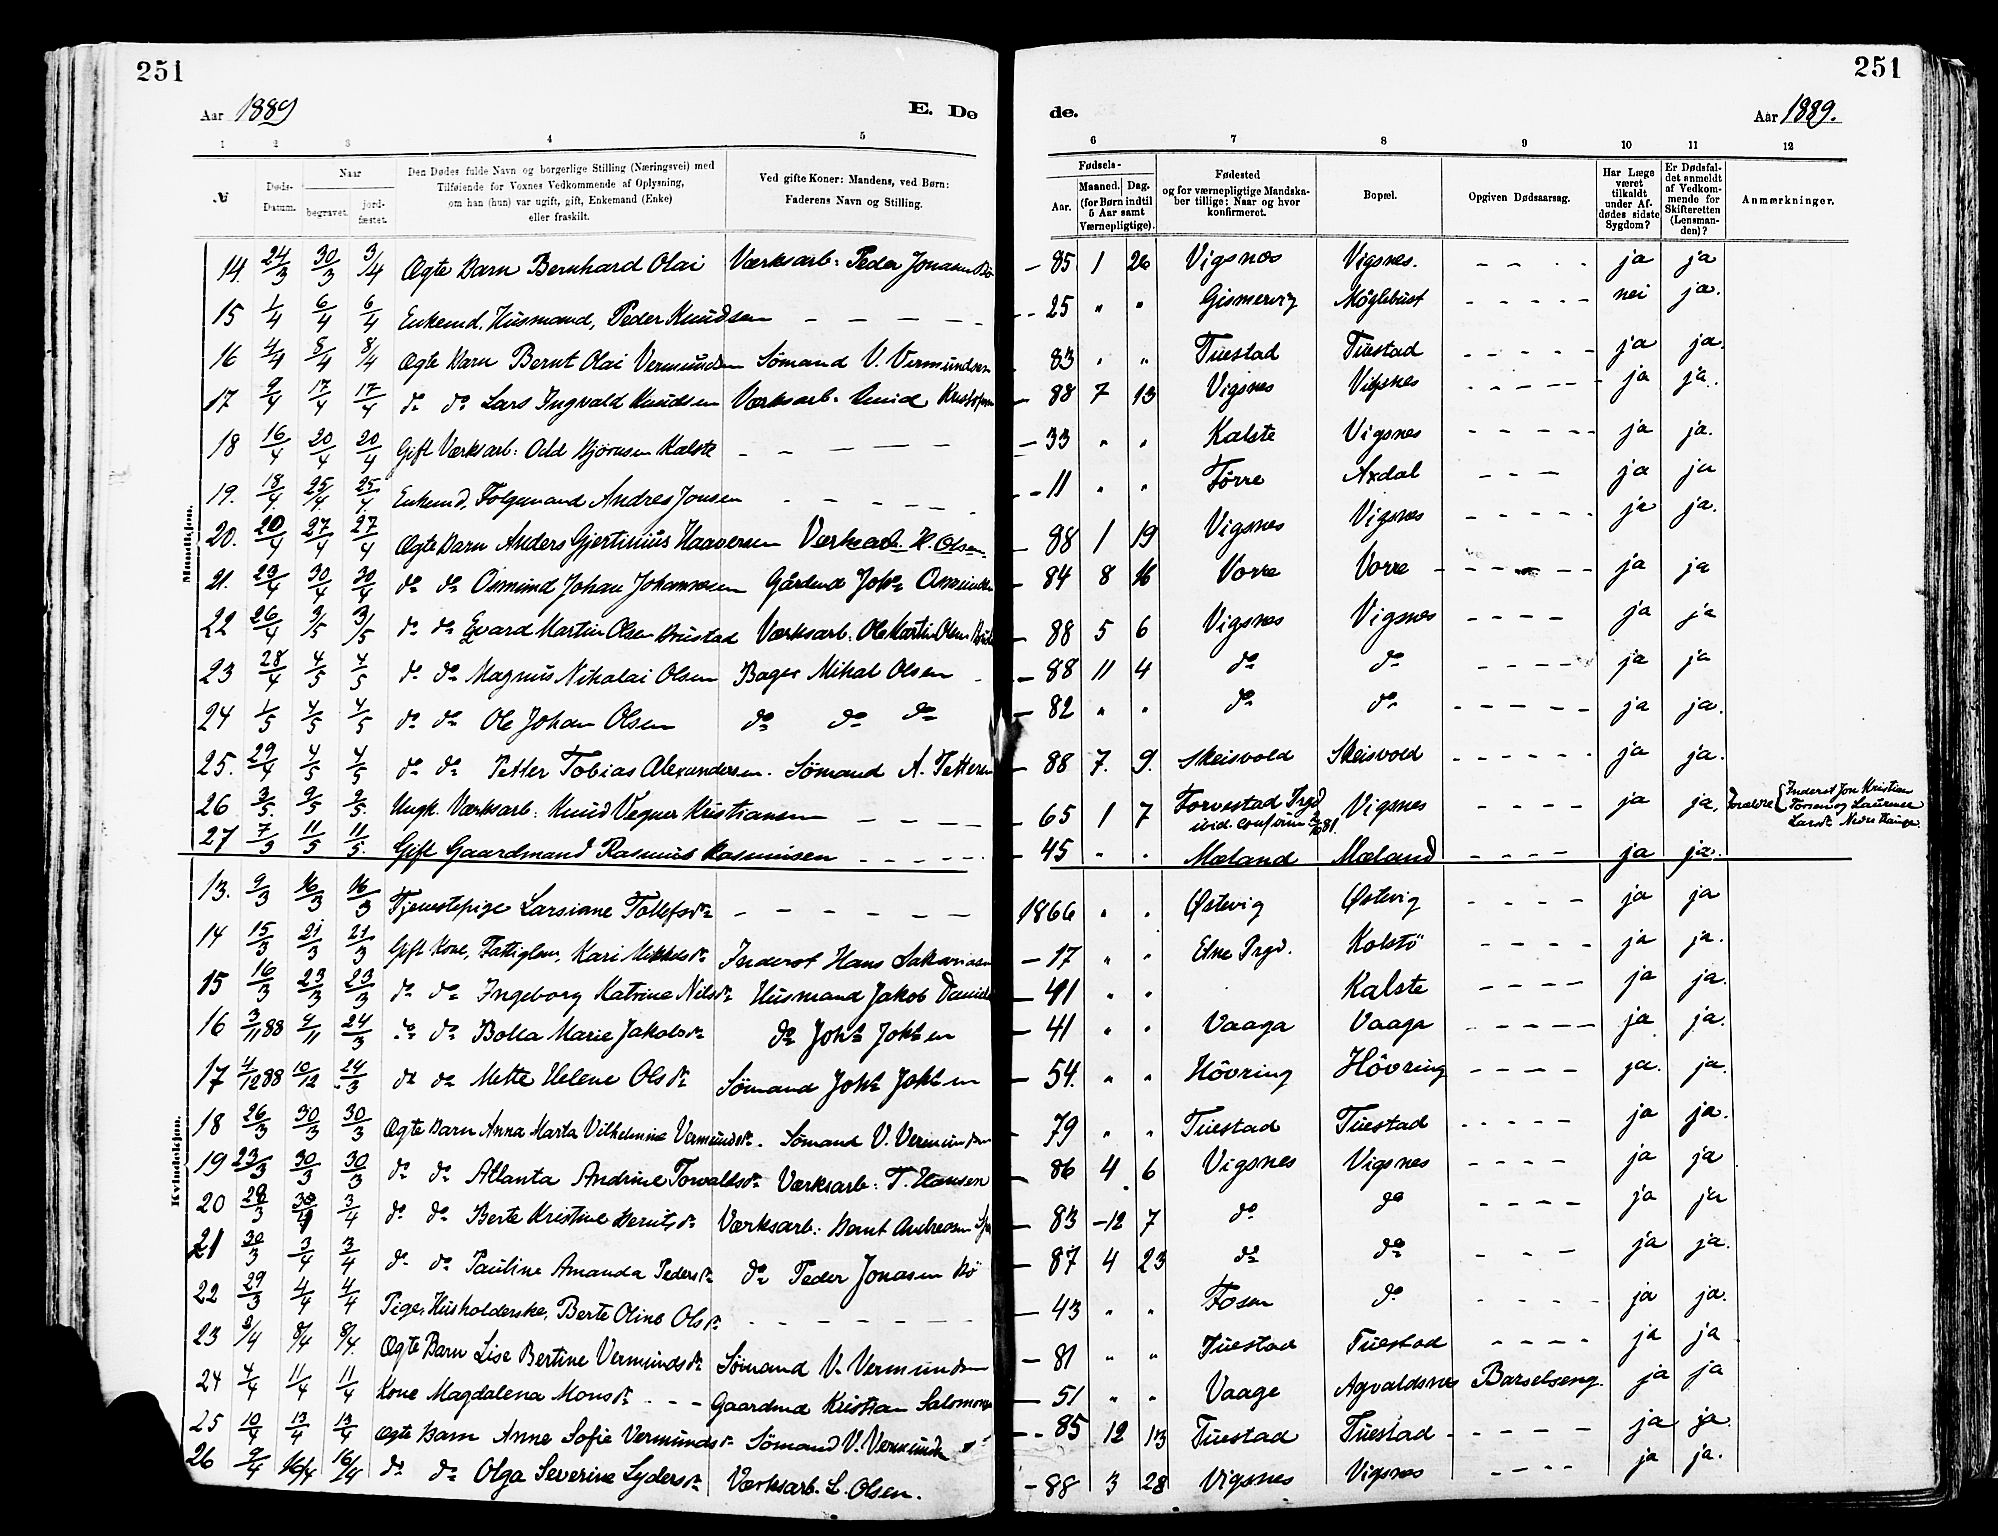 251
251
Aar 1889
E. Dø
de.
Aar 1889.
1 2 3 4 5 6 7 8 9 10 11 12
№
Døds-Datum.
Naar
begravet.
jordfæstet.
Den Dødes fulde Navn og borgerlige Stilling (Næringsvei) med
Tilføiende for Voxnes Vedkommende af Oplysning,
om han (hun) var ugift, gift, Enkemand (Enke)
eller fraskilt.
Ved gifte Koner: Mandens, ved Børn:
Faderens Navn og Stilling.
Fødsels-
Aar.
Maaned. Dag.
(for Børn indtil
5 Aar samt
Værnepligtige).
Fødested
og for værnepligtige Mandska-
ber tillige: Naar og hvor
konfirmeret.
Bopæl.
Opgiven Dødsaarsag.
Har Læge
været
tilkaldt
under Af-
dødes sidste
Sygdom?
Er Dødsfal-
det anmeldt
af Vedkom-
mende for
Skifteretten
(Lensman-
den)?
Anmærkninger.
Mandkjøn.
14. 24/3 30/3 3/4 Ægte Barn Bernhard Olai Værksarb: Peder Jonasen Bö – 85 1 26 Vigsnæs Vigsnes. - - - - ja ja
15 1/4 6/4 6/4 Enkemd. Husmand, Peder Knudsen - - - - - 25 " " Gismervig Möglebust - - - - - nei ja.
16 4/4 8/4 8/4 Ægte Barn Bernt Olai Vermundsen Sømand V. Vermundsen 83 " " Tuestad Tuestad - - - - - ja ja.
17 9/4 17/4 17/4 do do Lars Ingvald Knudsen Værksarb. Knud – 88 7 13 Vigsnes Vigsnes - - - - - ja ja.
18 16/4 20/4 20/4 Gift Værksarb: Odd Bjørnsen Kalste - - - - – 33 " " Kalste Vigsnes - - - - - ja ja.
19. 18/4 25/4 25/4 Enkemd, Folgemand Andres Jonsen - - - - - – 11 " " Førre Axdal - - - ja ja
20. 20/4 27/4 27/4 Ægte Barn Anders Gjertinius Haaversen Værksarb H. Olsen – 88 1 19 Vigsnes Vigsnes - - - - - ja ja.
21. 23/4 30/4 30/4 do do Osmund Johan Johannesen Gårdmd Johs Osmundsen – 84 8 16 Vorre Vorre - - - - - ja ja
22 26/4 3/5 3/5 do do Evard Martin Olsen Brustad Værksarb: Ole Martin Olsen – 88 5 6 Vigsnes Vigsnes - - - - ja ja
23 28/4 4/5 4/5 do do Magnus Nikolai Olsen Bager Mikal Olsen – 88 11 4 do do - - - - ja ja
24 1/5 4/5 4/5 do do Ole Johan Olsen do do do – 82 " " do do - - - - - ja ja.
25. 29/4 4/5 4/5 do do Petter Tobias Alexandersen. Sømand A. Pettersen – 88 7. 9. Skeisvold Skeisvold - - - - - ja ja.
26 3/5. 9/5 9/5. Ungk. Værksarb: Knud Vegner Kristiansen - - - - – 65 1 7 Torvestad Prgd Vigsnes - - - - ja ja. Foraldre { Inderst Jon Kristian
27 7/5 11/5 11/5. Gift Gaardmand Rasmus Rasmusen - - - - - – 45 " " Mæland Mæland - - - - ja ja.
Kvindekjøn.
13. 9/3 16/3 16/3 Tjenestepige Larsiane Tollefsdr - - - - - - 1866 " " Østevig Østevig - - - - ja ja
14 15/3 21/3 21/3 Gift Kone, Fattiglem, Kari Mikkelsdr Inderst Hans – 17 " " Etne Prgd. Kolstö - - - - ja ja.
15 16/3 23/3 23/3 do do Ingeborg Katrine Nilsdr Husmand Jakob – 41 " " Kalste - - - - ja ja.
16 3/11 88 9/11 24/3 do do Bolla Marie Jakobsdr do Johs Johsen – 41 " " Vaaga Vaaga - - - - - ja ja.
17 4/12 88 10/12 24/3 do do Mette Helene Olsdr Sømand Johs Johsen – 54. " " Hövring Hövring - - - - ja. ja.
18 26/3 30/3 30/3 Ægte Barn Anna Marta Vilhelmine Vermundsdr. Sømand V. Vermundsen 79 " " Tuestad Tuestad - - - - - ja ja.
19 23/3 30/3 30/3 do do Atlanta Andrine Torvaldsdr Værksarb: T. Hansen – 86 4 6 Vigsnes Vigsnes - - - - ja ja
20 28/3 3/4 do do Berte Kristine Berntsdr Værksarb: Bernt Andreasen – 83 -12 7 do do - - - - ja ja
21 30/3 3/4 3/4 do do Pauline Amanda Pedersdr do Peder Jonasen Bö – 87 4 23 do do - - - ja ja.
22 29/3 4/4 4/4 Pige, Husholderske, Berte Oline Olsdr - - - - - - – 43 " " Fosen do - - - - ja ja.
23 2/4 8/4 8/4. Ægte Barn Lise Bertine Vermundsdr Sømand V. Vermundsen – 81 " " Tuestad Tuestad - - - - ja ja
24 4/4 11/4 11/4 Kone Magdalena Monsdr - - - Gaardmd Kristian – 51 " " Vaage Agvaldsnes Barselseng. ja ja
25 10/4 13/4 13/4 Ægte Barn Anne Sofie Vermundsdr Sømand V. Vermundsen – 85 12 13 Tuestad Tuestad - - - - - ja ja.
26 9/4 16/4 16/4 do do Olga Severine Lydersdr Værksarb. L. Olsen. – 88 3 28 Vigsnes Vigsnes - - - - ja ja.